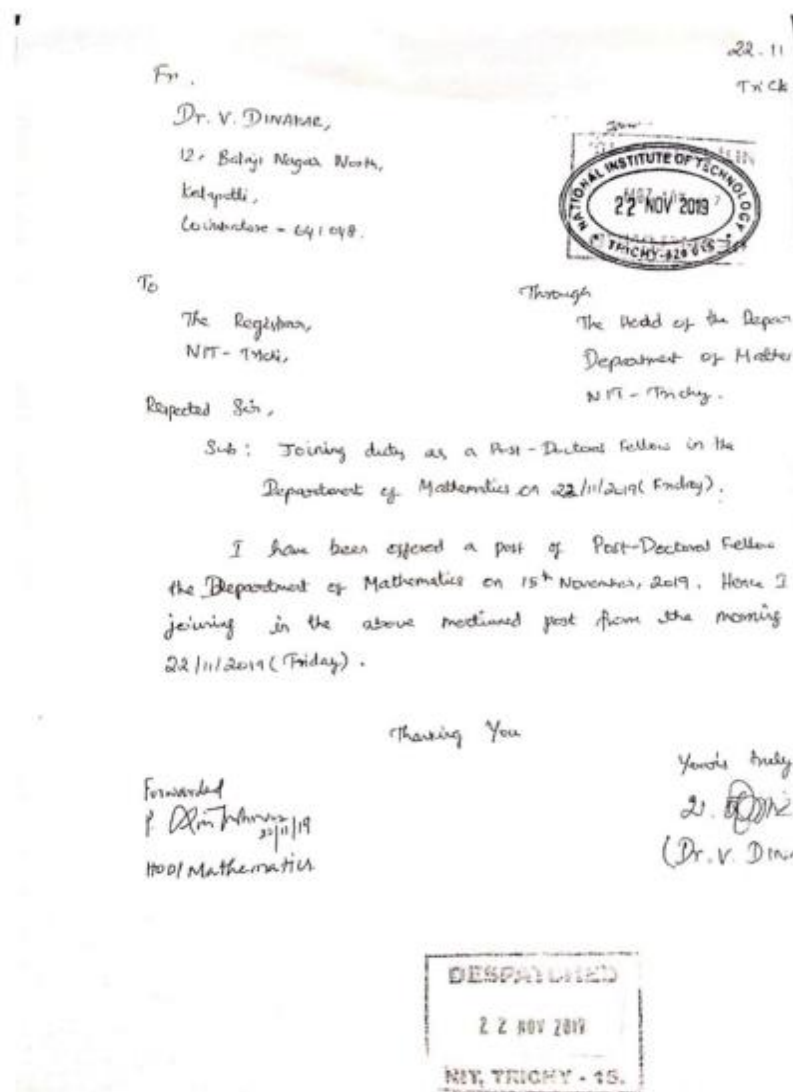 22.11
Trich
Fr.
Dr. V. DINAKAR,
12, Balaji Nagar North,
Kalapatti,
Coimbatore - 641048.
NATIONAL INSTITUTE OF TECHNOLOGY
22 NOV 2019
TRICHY-620 015
To
The Registrar,
NIT- Trichi,
Through
The Head of the Depar
Department of Mathe
NIT- Trichy.
Respected Sir,
Sub: Joining duty as a Post-Doctoral Fellow in the
Department of Mathematics on 22/11/2019 (Friday).
I have been offered a post of Post-Doctoral Fellow
the Department of Mathematics on 15th November, 2019. Hence I
joining in the above mentioned post from the morning
22/11/2019 (Friday).
Thanking You
Yours truly
(Dr. V. DINA
Forwarded
22/11/19
HOD/Mathematics
DESPATCHED
22 NOV 2019
NIT, TRICHY - 15.